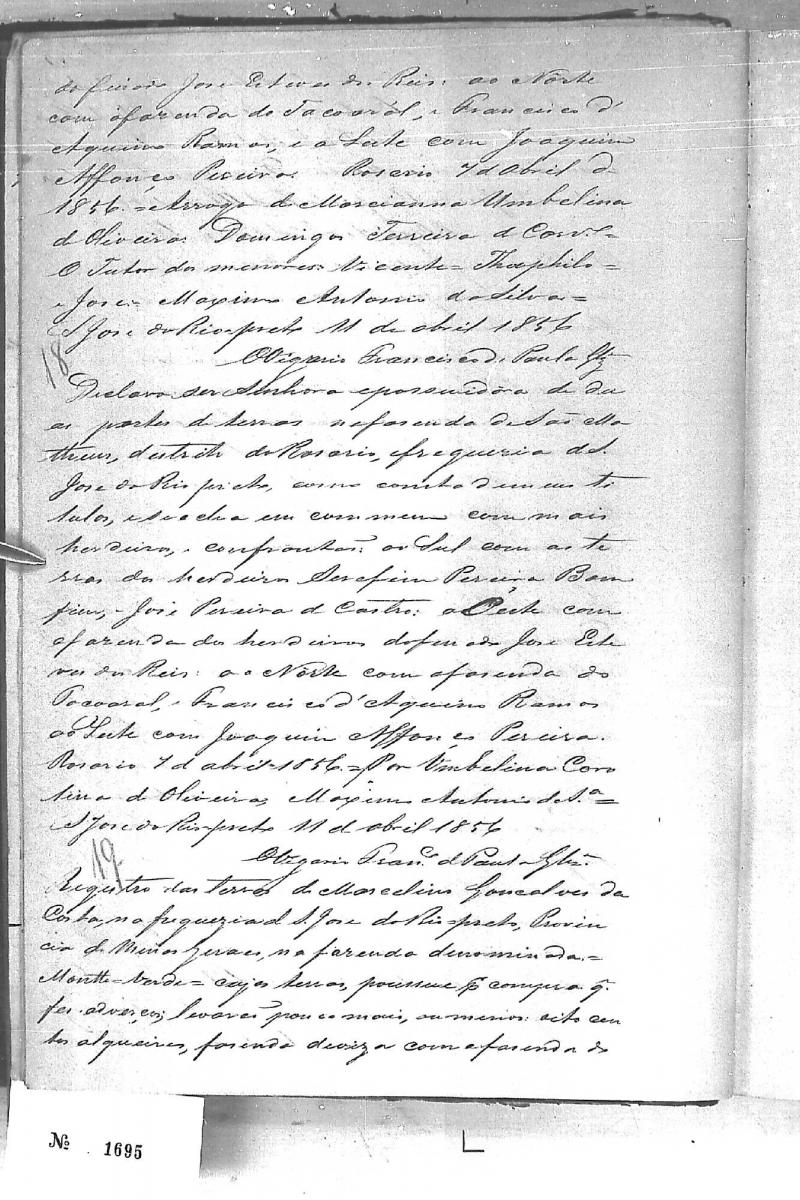 do finado Jose Esteves dos Reis: ao Norte
com a fazenda do Tacoarál, e Francisco d'
Aquino Ramos, e a Leste com Joaquim
Affonço Pereira. Rosario 7 d abril d
1856. = Arrogo de Marcianna Umbelina
d Oliveira: Domingos Ferreira d Carv.º =
O Tutor dos menores: Vicente = Theophilo =
e Jose = Maximo Antonio da Silva =
S Jose do Rio preto 11 de abril 1856
O Vigario Francisco d Paula Glz
18
Declaro ser Senhora e possuidora de du
as partes de terras na fasenda de São Ma
theus, destrito do Rosario, freguezia de S.
Jose do Rio preto, como consta de meus ti
tulos, e se acha em commum com mais
herdeiros, e confrontaõ: ao Sul com as te
rras dos herdeiros Serafim Pereira Bom
fim, e Jose Pereira d Castro: a Oeste com
a fazenda dos herdeiros do finado Jose Este
ves dos Reis: ao Norte com a fasenda do
Tacoaral, e Francisco d' Aquino Ramos
ao Leste com Joaquim Affonço Pereira.
Rosario 7 d abril 1856 = Por Umbelina Caro
lina de Oliveira, Maximo Antonio da S.ª =
S Jose do Rio preto 11 d abril 1856
O Vigario Fran.co d Paula Glz
19
Registro das terras de Marcelino Gonçalves da
Costa, na freguezia d S Jose do Rio preto, Provin
cia de Minas Geraes, na fazenda denominada =
Montte = Verde = cujas terras, poussue p compra q.
fes adverços, levará pouco mais, ou menos: oito cen
tos alqueires, fasendo deviza com a fasenda do
Nº 1695